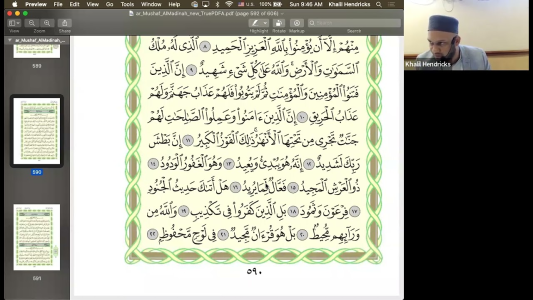 Preview File Edit View Go Tools Window Help
Sun 9:46 AM Khalil Hendricks
ar_Mushaf_AlMadinah_new_TruePDFA.pdf (page 592 of 606)
Sidebar Zoom Share
Highlight Rotate Markup Search
ar_Mushaf_AlMadinah_...
Khalil Hendricks
589
590
591
مِنْهُمْ إِلَّآ أَن يُؤْمِنُوا۟ بِٱللَّهِ ٱلْعَزِيزِ ٱلْحَمِيدِ ٨ ٱلَّذِى لَهُۥ مُلْكُ
ٱلسَّمَٰوَٰتِ وَٱلْأَرْضِ وَٱللَّهُ عَلَىٰ كُلِّ شَىْءٍ شَهِيدٌ ٩ إِنَّ ٱلَّذِينَ
فَتَنُوا۟ ٱلْمُؤْمِنِينَ وَٱلْمُؤْمِنَٰتِ ثُمَّ لَمْ يَتُوبُوا۟ فَلَهُمْ عَذَابُ جَهَنَّمَ وَلَهُمْ
عَذَابُ ٱلْحَرِيقِ ١٠ إِنَّ ٱلَّذِينَ ءَامَنُوا۟ وَعَمِلُوا۟ ٱلصَّٰلِحَٰتِ لَهُمْ
جَنَّٰتٌ تَجْرِى مِن تَحْتِهَا ٱلْأَنْهَٰرُ ذَٰلِكَ ٱلْفَوْزُ ٱلْكَبِيرُ ١١ إِنَّ بَطْشَ
رَبِّكَ لَشَدِيدٌ ١٢ إِنَّهُۥ هُوَ يُبْدِئُ وَيُعِيدُ ١٣ وَهُوَ ٱلْغَفُورُ ٱلْوَدُودُ ١٤
ذُو ٱلْعَرْشِ ٱلْمَجِيدُ ١٥ فَعَّالٌ لِّمَا يُرِيدُ ١٦ هَلْ أَتَىٰكَ حَدِيثُ ٱلْجُنُودِ
١٧ فِرْعَوْنَ وَثَمُودَ ١٨ بَلِ ٱلَّذِينَ كَفَرُوا۟ فِى تَكْذِيبٍ ١٩ وَٱللَّهُ مِن
وَرَآئِهِم مُّحِيطٌۢ ٢٠ بَلْ هُوَ قُرْءَانٌ مَّجِيدٌ ٢١ فِى لَوْحٍ مَّحْفُوظٍۭ ٢٢
٥٩٠